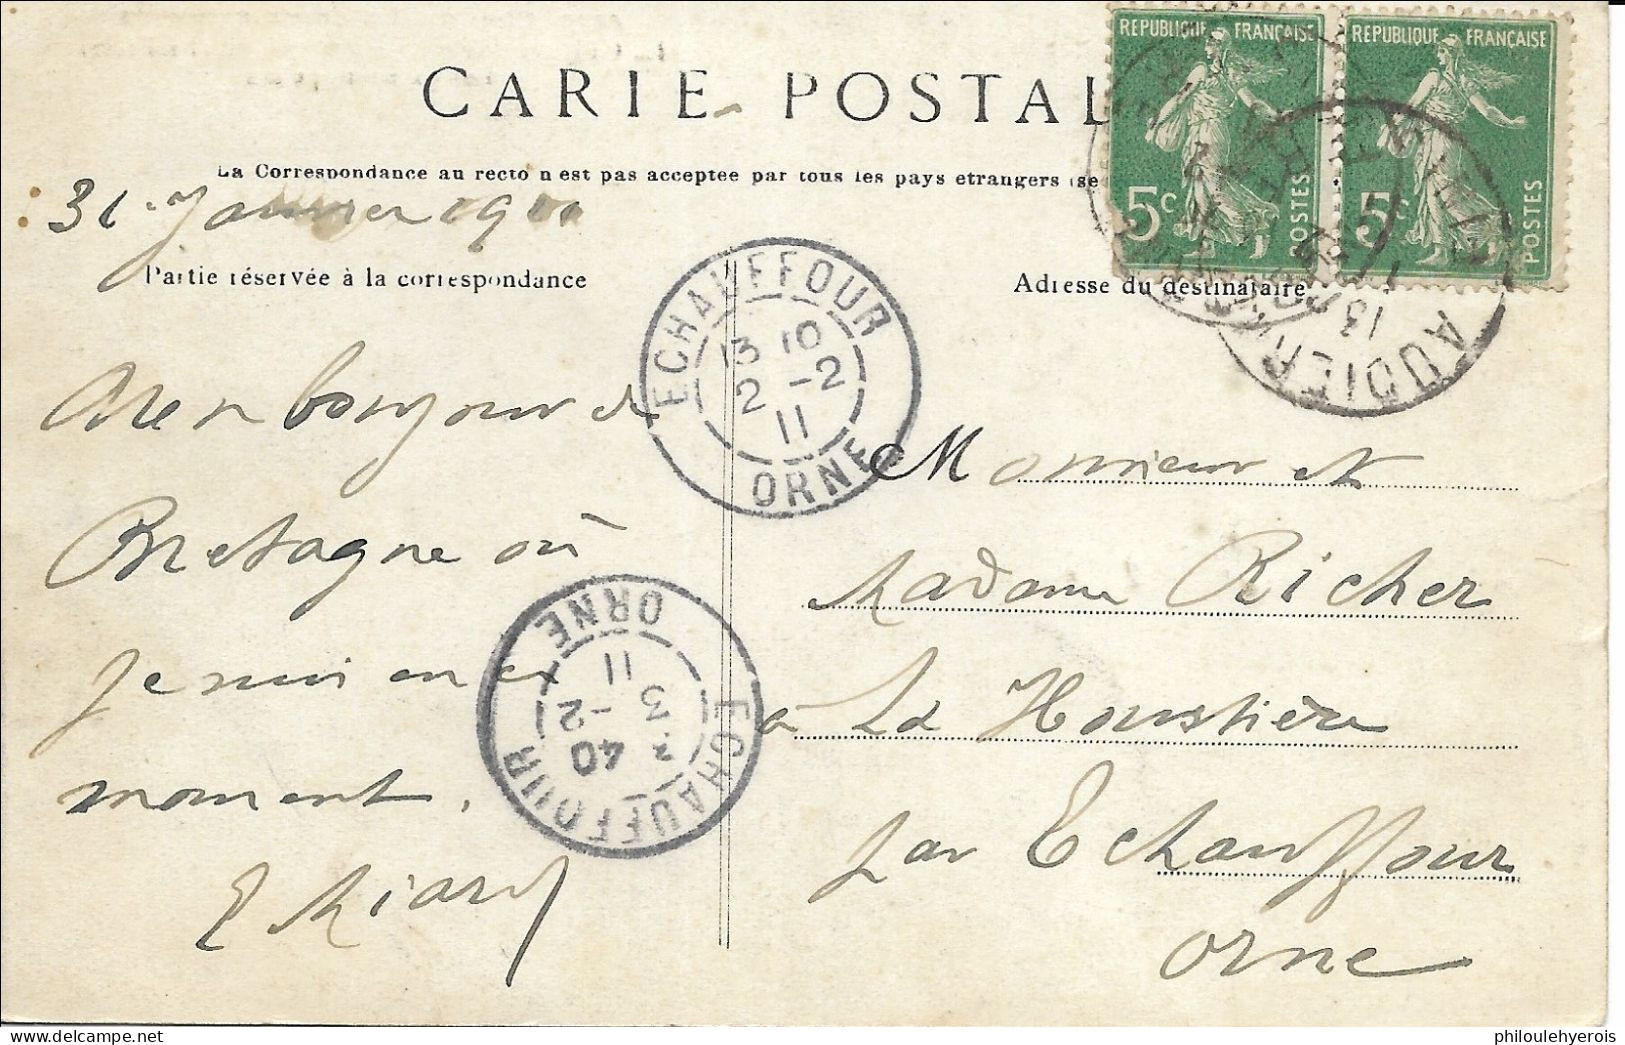 CARTE POSTAL
REPUBLIQUE FRANÇAISE
5c POSTES
REPUBLIQUE FRANÇAISE
5c POSTES
La Correspondance au recto n'est pas acceptée par tous les pays étrangers (se
31 Janvier 1911
Partie réservée à la correspondance
Adresse du destinataire
ECHAUFFOUR
13 10
2 -2
11
ORNE
AUDIERNE
13
bonjour de
Bretagne où
je suis en ce
moment.
E Riard
ECHAUFFOUR
40
3 -2
11
ORNE
Monsieur et
Madame Richer
à La Houstière
par Echauffour
Orne
philoulehyerois